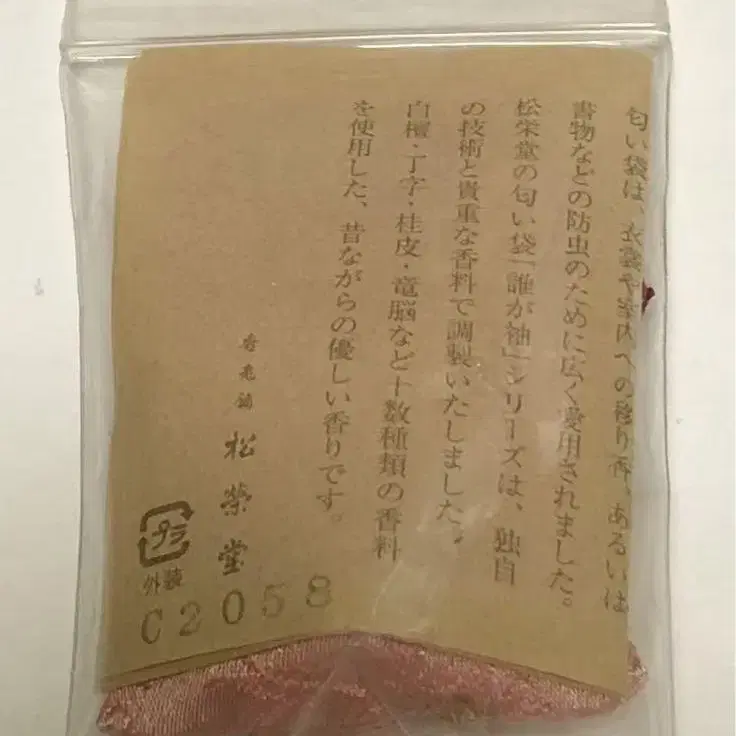 匂い袋は、衣裳や室内への移り香、あるいは
書物などの防虫のために広く愛用されました。
松栄堂の匂い袋「誰が袖」シリーズは、独自
の技術と貴重な香料で調製いたしました。
白檀・丁字・桂皮・竜脳など十数種類の香料
を使用した、昔ながらの優しい香りです。
香老舗
松榮堂
プラ
外装
C2058